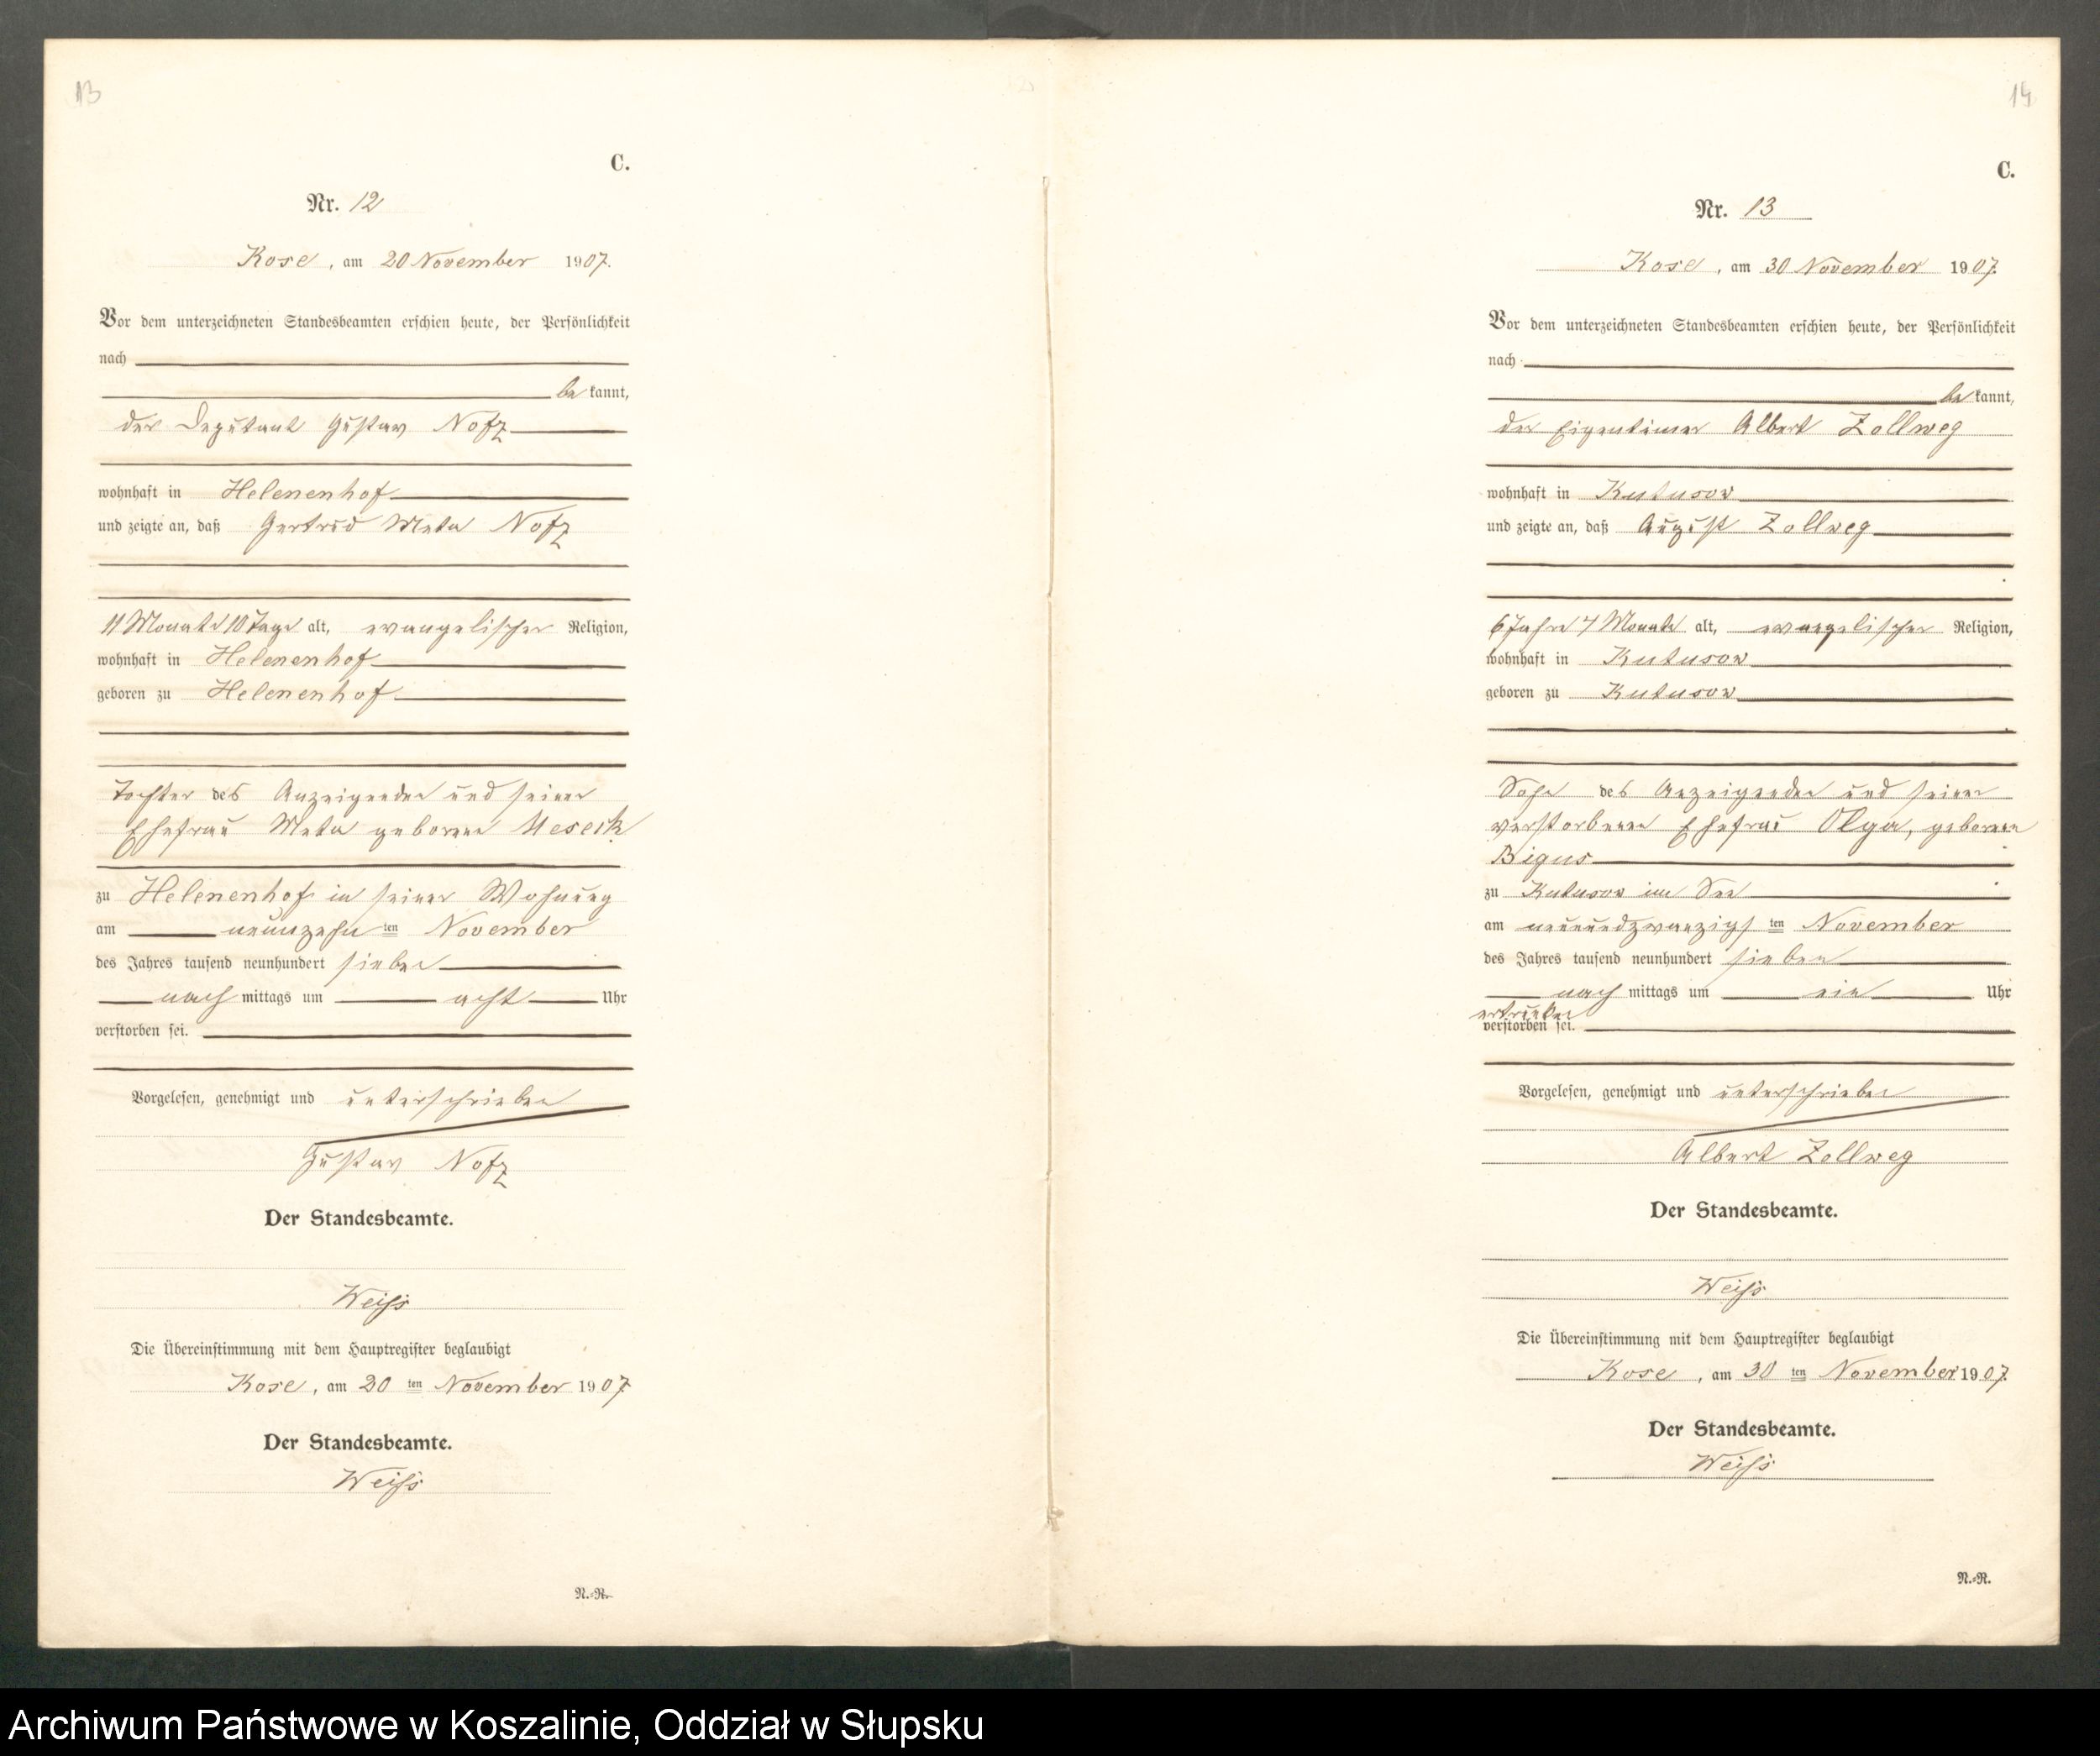 13
C.
Nr. 12
Kose, am 20 November 1907.
Vor dem unterzeichneten Standesbeamten erschien heute, der Persönlichkeit
nach
be kannt,
der Deputant Gustav Notz
wohnhaft in Helenenhof
und zeigte an, daß Gertrud Meta Notz
11 Monate 10 Tage alt, evangelischer Religion,
wohnhaft in Helenenhof
geboren zu Helenenhof
Tochter des Anzeigenden und seiner
Ehefrau Meta geborene
zu Helenenhof in seiner Wohnung
am neunzehn ten November
des Jahres tausend neunhundert sieben
nach mittags um acht Uhr
verstorben sei.
Vorgelesen, genehmigt und unterschrieben
Gustav Notz
Der Standesbeamte.
Weiß
Die Übereinstimmung mit dem Hauptregister beglaubigt
Kose, am 20 ten November 1907
Der Standesbeamte.
Weiß
N.-R.
14
C.
Nr. 13
Kose, am 30 November 1907.
Vor dem unterzeichneten Standesbeamten erschien heute, der Persönlichkeit
nach
be kannt,
der Eigentümer Albert Zollweg
wohnhaft in Kutusow
und zeigte an, daß August Zollweg
6 Jahre 7 Monate alt, evangelischer Religion,
wohnhaft in Kutusow
geboren zu Kutusow
Sohn des Anzeigenden und seiner
verstorbenen Ehefrau Olga, geborene
Bigus
zu Kutusow im See
am neunundzwanzigs ten November
des Jahres tausend neunhundert sieben
nach mittags um ein Uhr
ertrunken
verstorben sei.
Vorgelesen, genehmigt und unterschrieben
Albert Zollweg
Der Standesbeamte.
Weiß
Die Übereinstimmung mit dem Hauptregister beglaubigt
Kose, am 30 ten November 1907.
Der Standesbeamte.
Weiß
N.-R.
Archiwum Państwowe w Koszalinie, Oddział w Słupsku